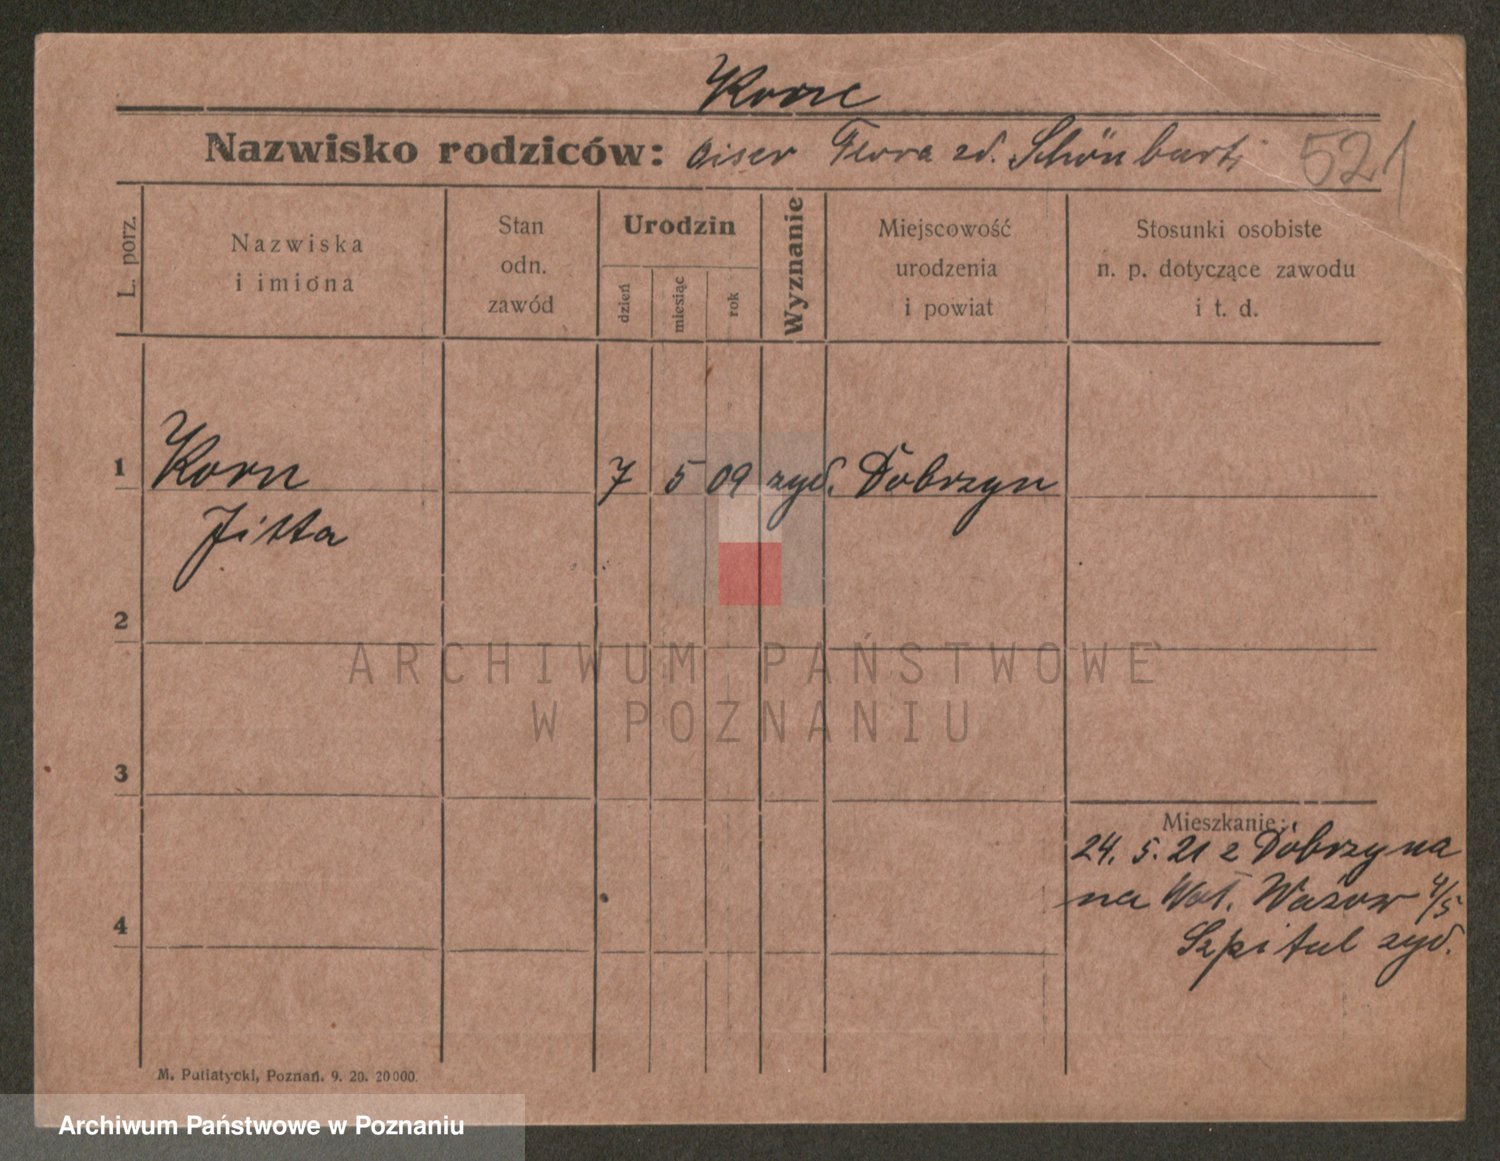 Korn
Nazwisko rodziców: Flora zd.
521
L. porz.
Nazwiska
i imiona
Stan
odn.
zawód
Urodzin
dzień
miesiąc
rok
Wyznanie
Miejscowość
urodzenia
i powiat
Stosunki osobiste
n. p. dotyczące zawodu
i t. d.
1
Korn 7 5 09 żyd. Dobrzyn
Jitta
2
3
4
ARCHIWUM PAŃSTWOWE
W POZNANIU
Mieszkanie:
24. 5. 21 z Dobrzyna
na 4/5
Szpital żyd.
M. Putiatycki, Poznań. 9. 20. 20000.
Archiwum Państwowe w Poznaniu